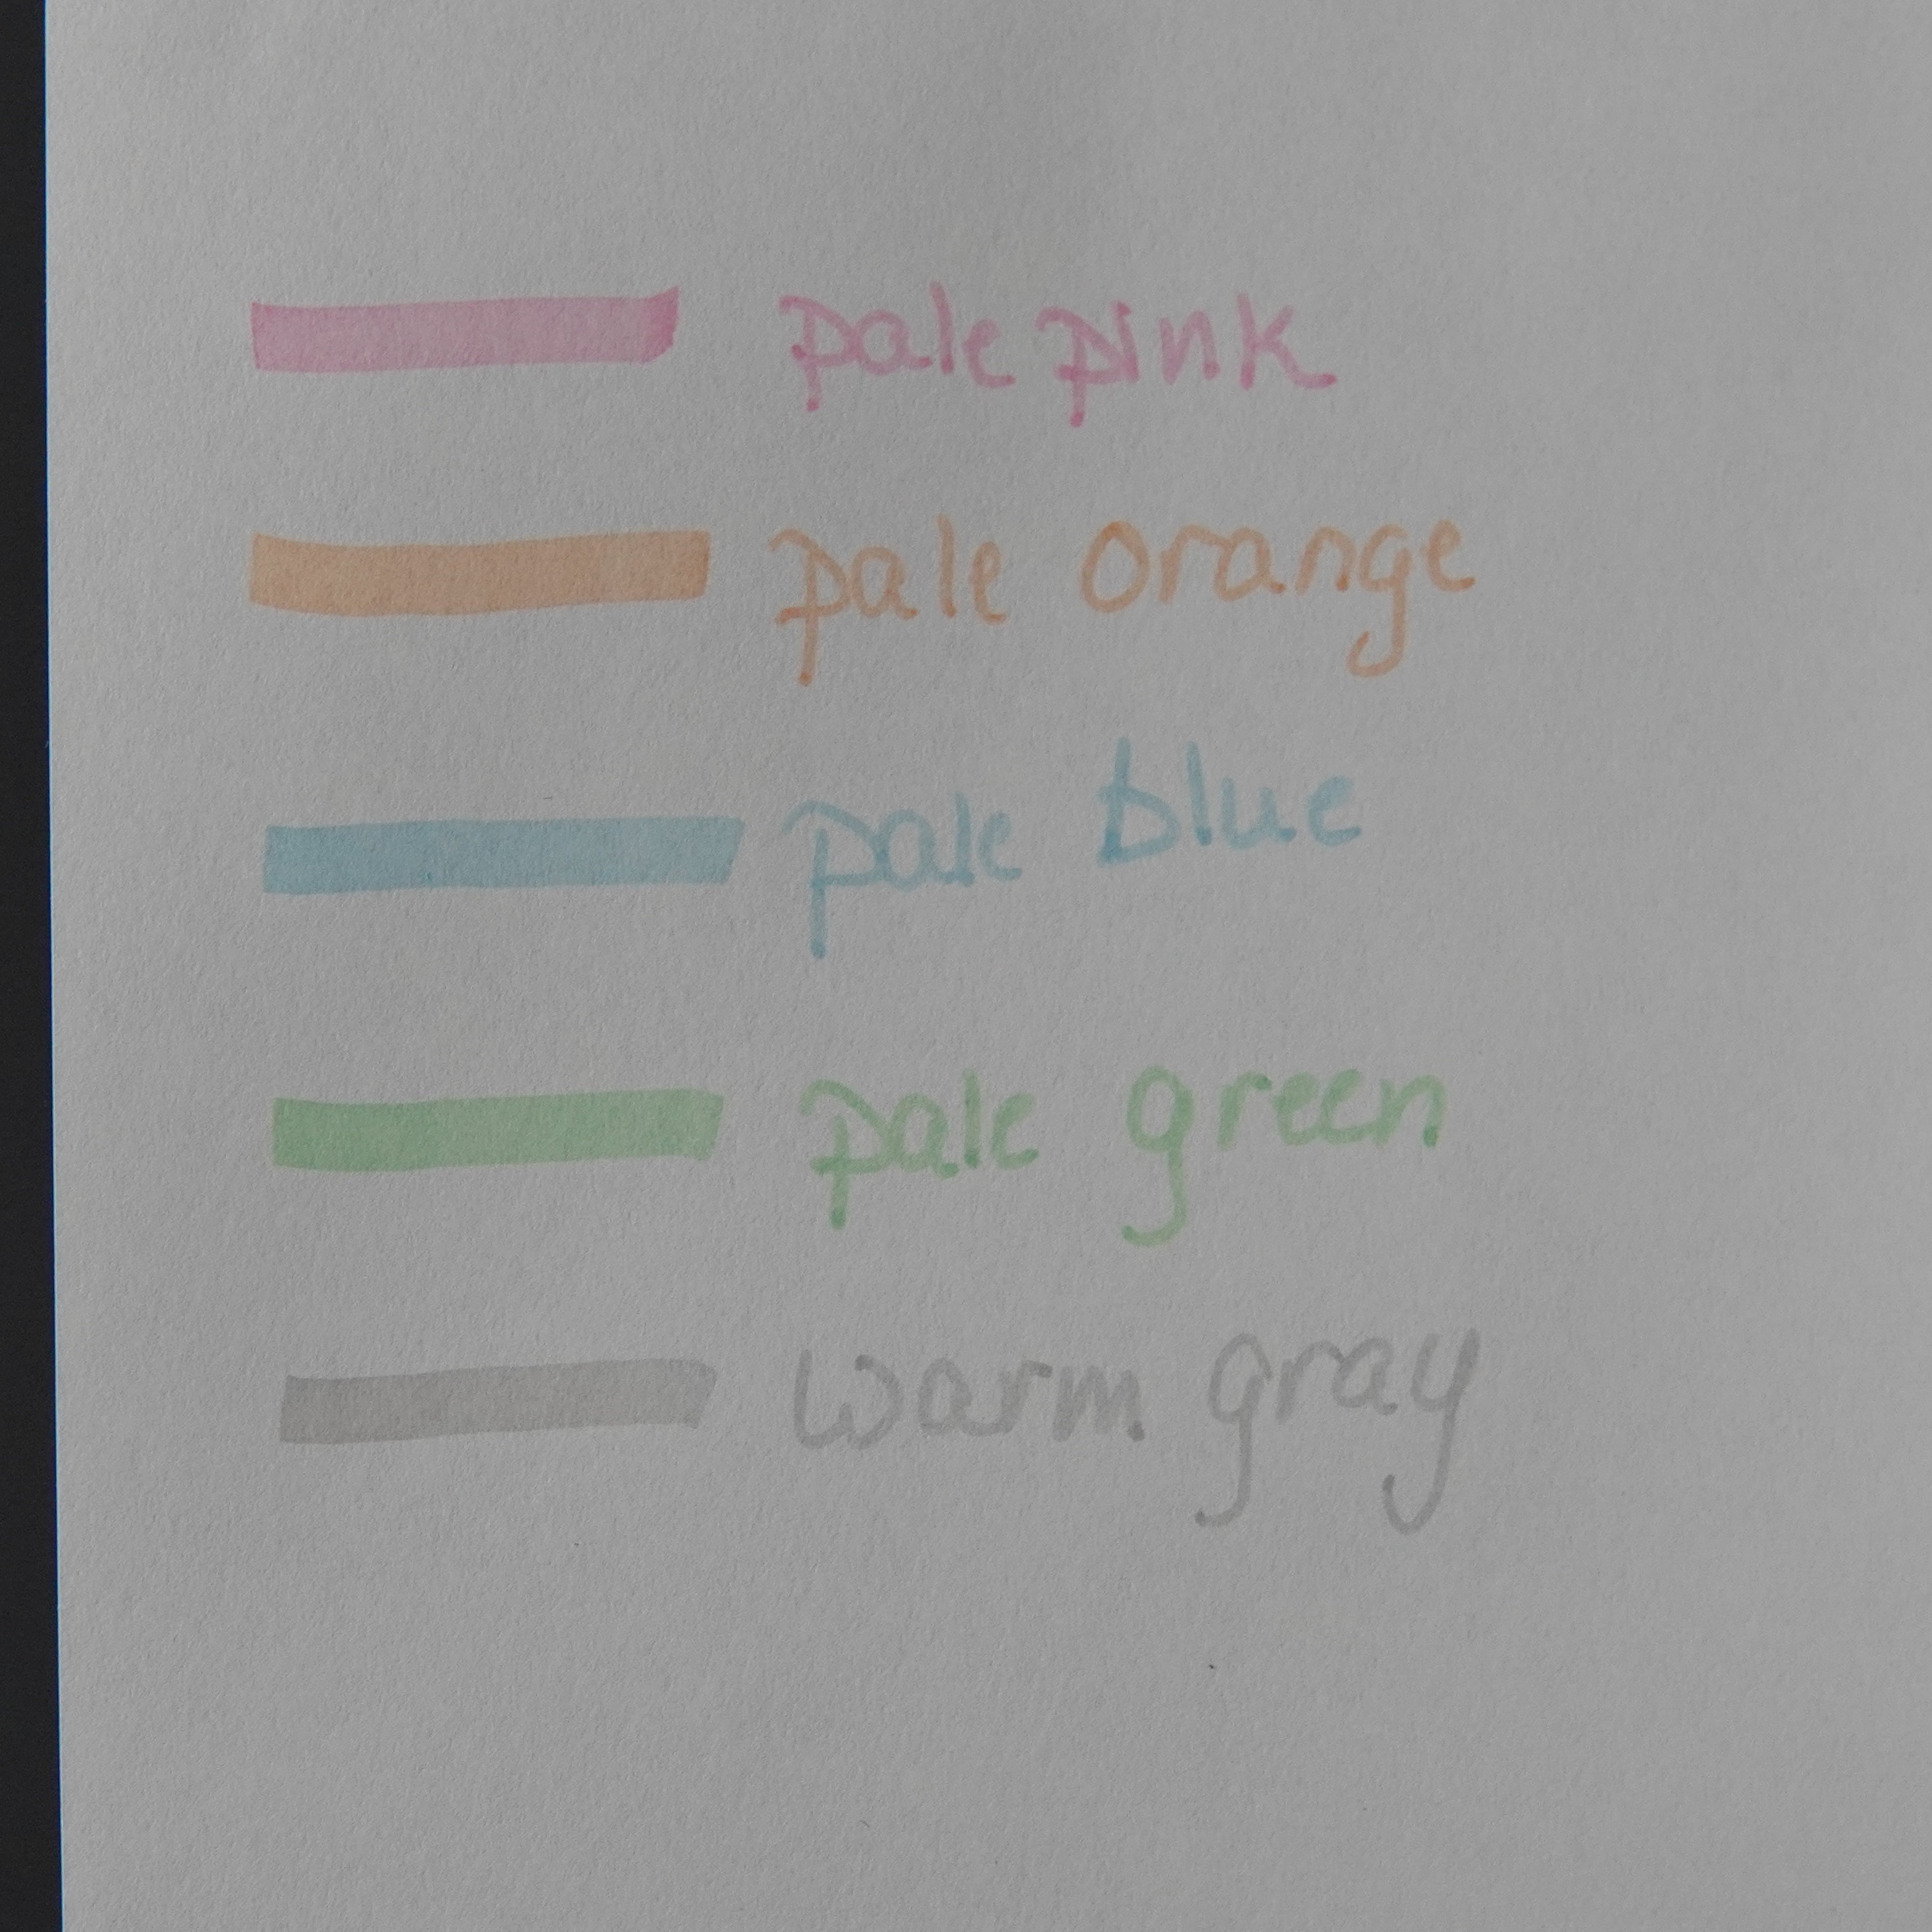 pale pink
pale orange
pale blue
pale green
warm gray